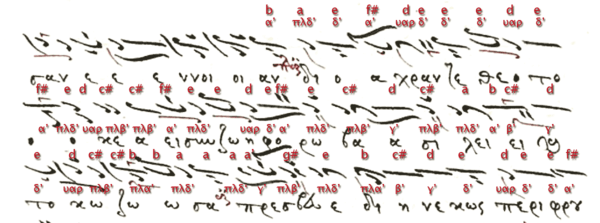 b a e f# d e e e d e
α' πλδ' δ' α' υαρ δ' δ' δ' υαρ δ'
σαν ε ε ε ννοι οι αν δι ο α χραντε θεο το
f# e d c# c# f# e e d e f# e c# d c# a b c# d
α' πλδ' υαρ πλβ' πλβ' α' πλδ' υαρ δ' α' πλδ' πλβ' γ' πλβ' πλδ' α' β' γ'
ο κε α ει σωζω φο ρω βα α σι λει ει
e d c# c# b b a a a a' g# e b c# d e d e e f#
δ' υαρ πλβ' πλα' πλδ' πλδ' γ' πλβ' πλδ' πλα' β' γ' δ' υαρ δ' α'
το κω ζω ω σα πρεσβευε δι η νε κως περιφρυ